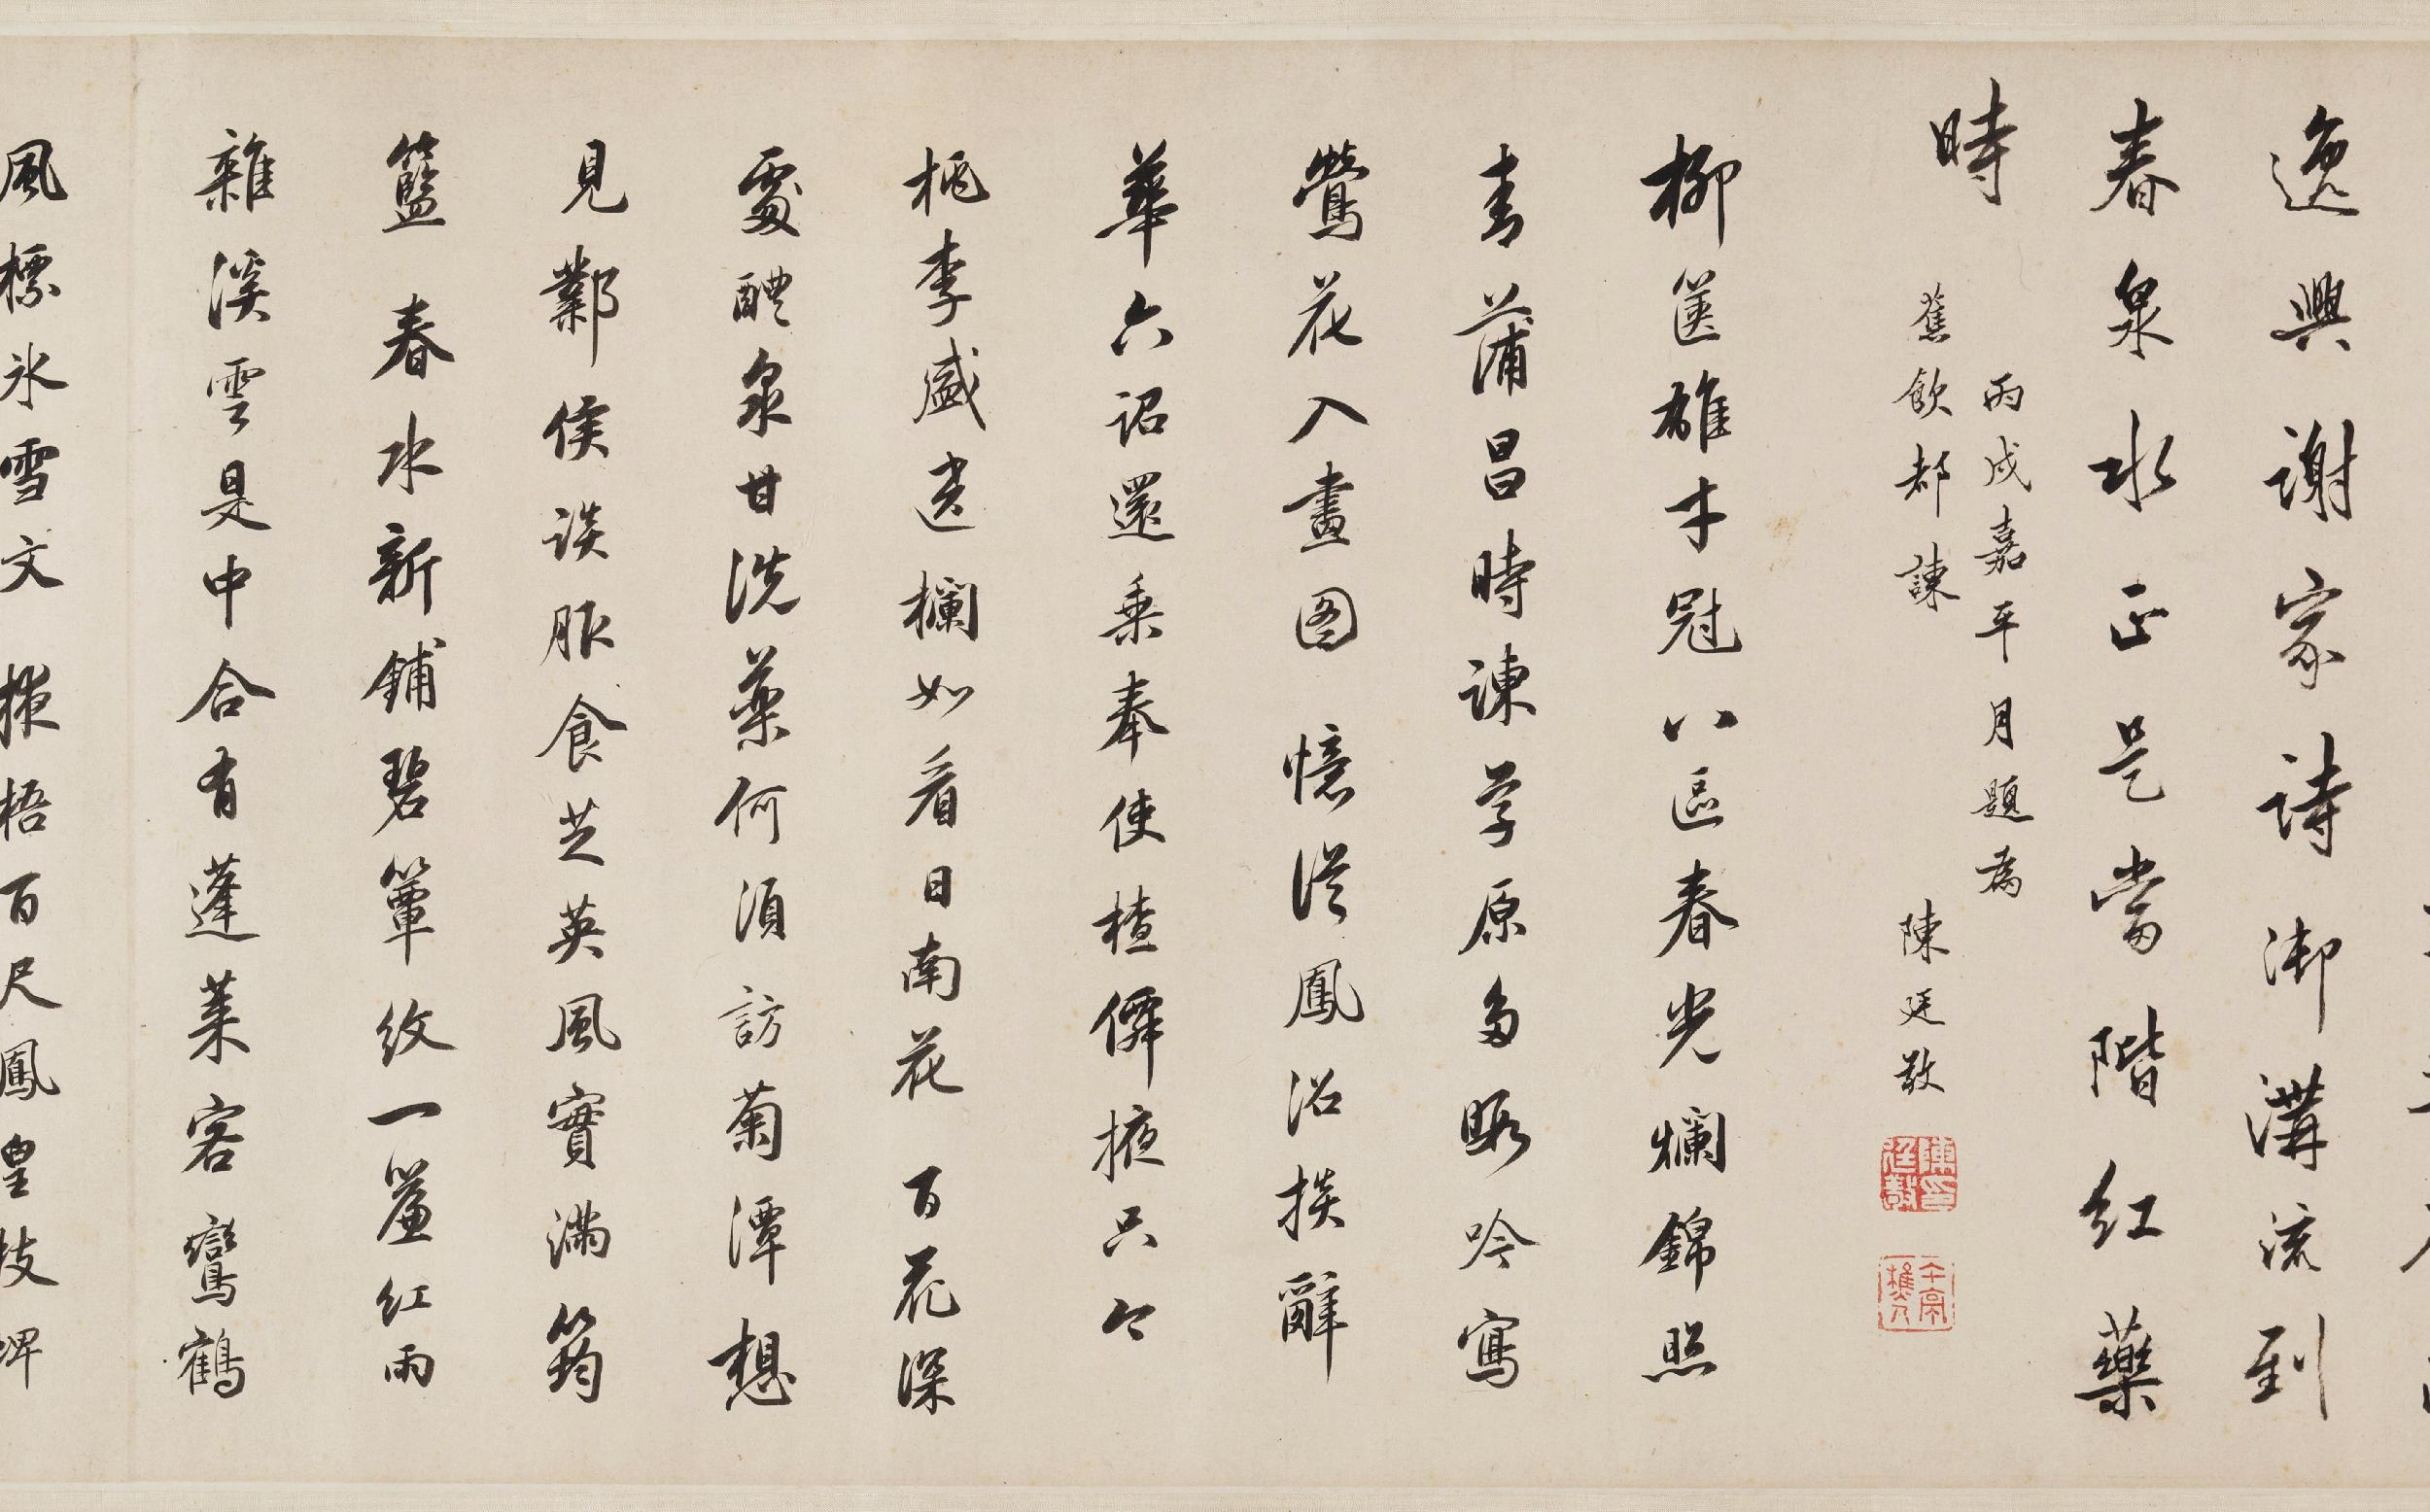 逸興謝家詩御溝流到
春泉水正是當階紅藥
時
丙戌嘉平月題為
蕉飲都諫
陳廷敬
陳廷敬印
午亭樵人
柳篋雄才冠八區春光爛錦照
青蒲昌時諫草原多暇吟寫
鶯花入畫圖 憶從鳳沼掞辭
華六詔還乘奉使槎僊掖只今
桃李盛憑欄如看日南花 百花深
處醴泉甘洗藥何須訪菊潭想
見鄴侯談服食芝英風實滿筠
籃 春水新鋪碧簟紋一簾紅雨
雜溪雲是中合有蓬萊客鸞鶴
風標冰雪文 掖梧百尺鳳皇枝